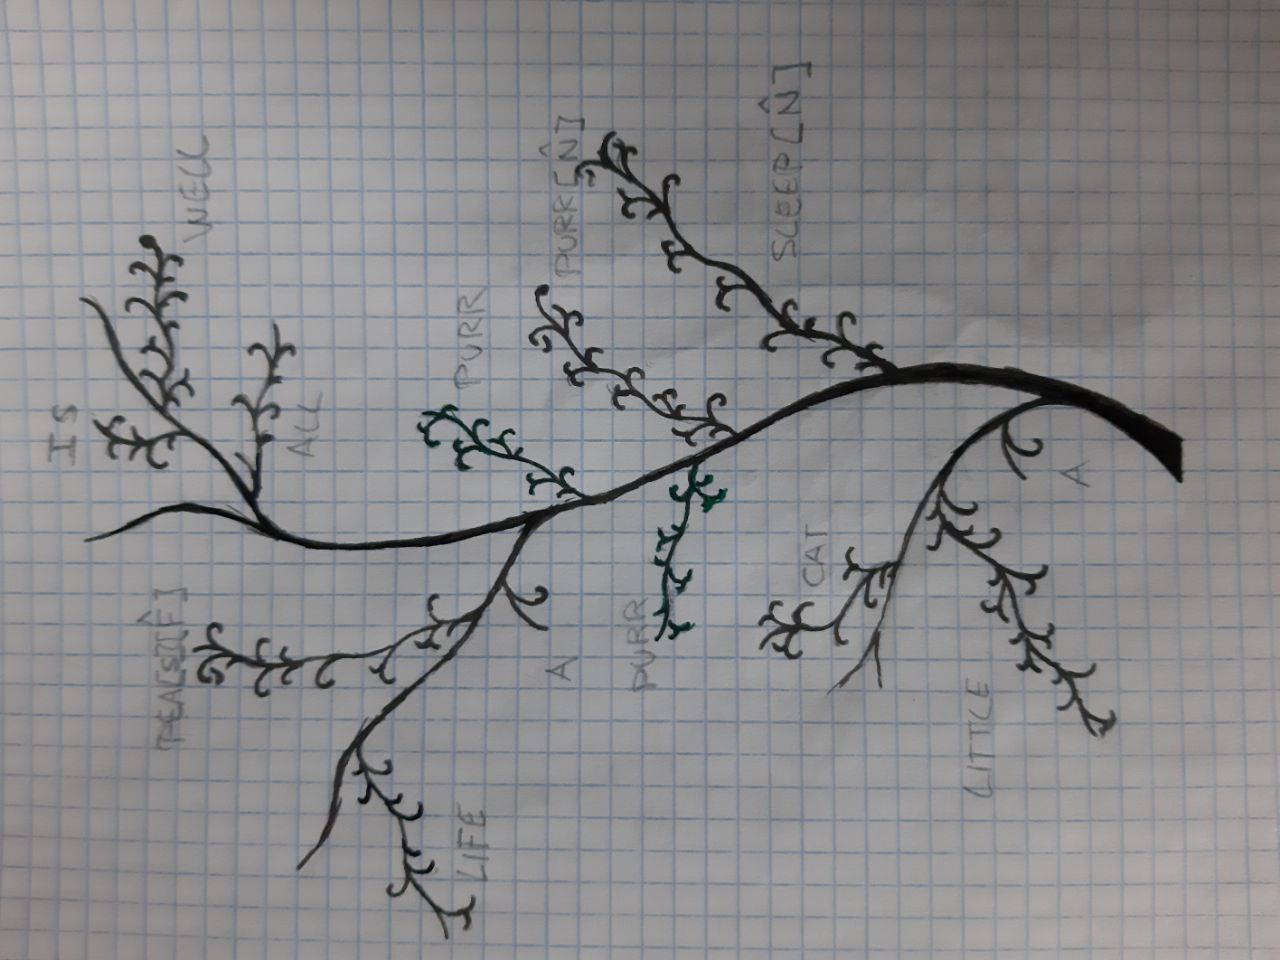 IS
PEA[S][F̂]
WELL
ALL
LIFE
PURR
A
PURR[N̂]
PURR
SLEEP[N̂]
CAT
LITTLE
A